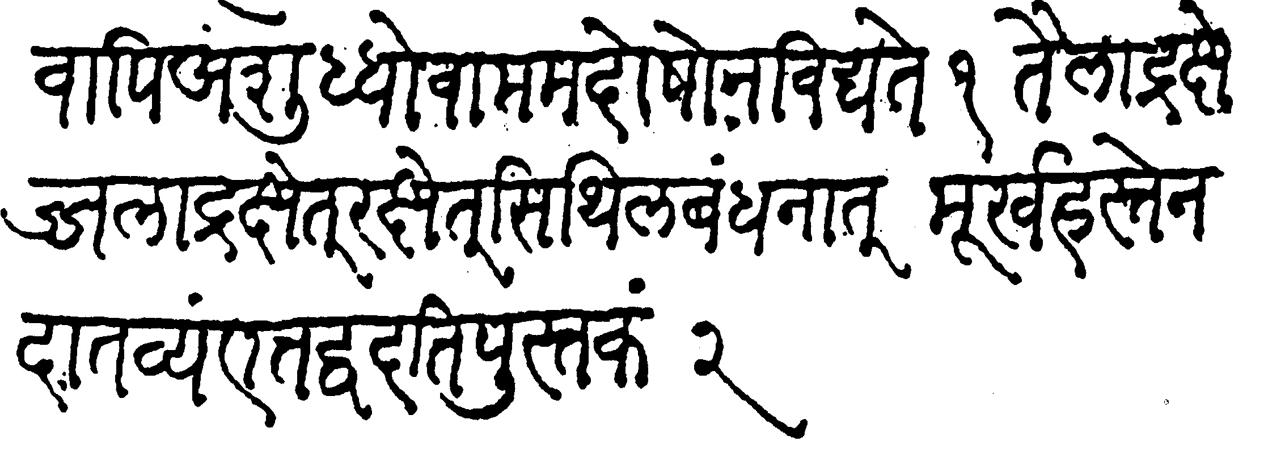 वापि अंशुध्धो वा मम दोषो न विद्यते १ तैलाद्रक्षे
ज्जलाद्रक्षेत् रक्षेत् सिथिल बंधनात् मूर्ख हस्ते न
दातव्यं एतद्वदति पुस्तकं २